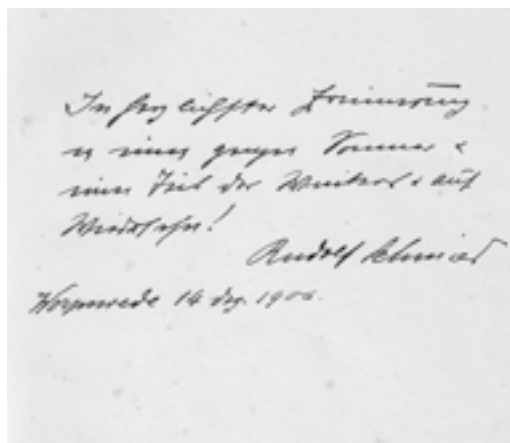 In herzlichster Erinnerung
an einen ganzen Sommer &
einen Teil des Winters & auf
Wiedersehn!
Rudolf Schmied
Worpswede 14 Dez.